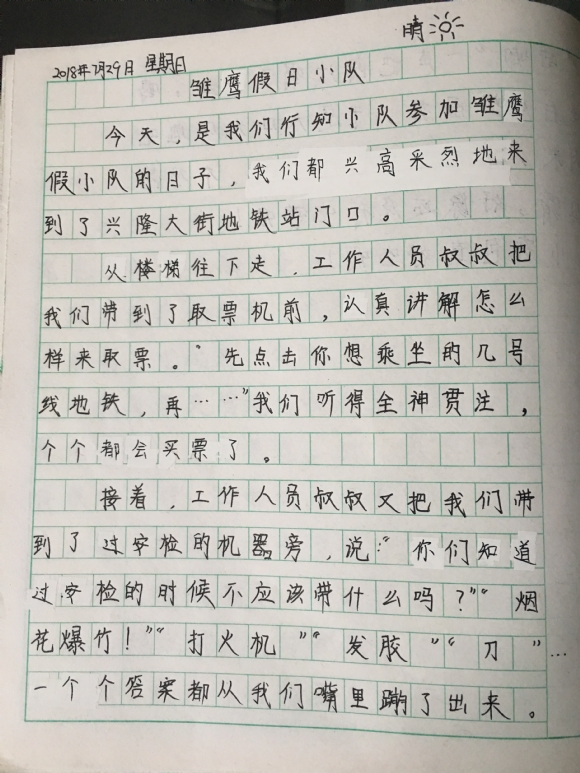 晴
2018年7月29日 星期日
雏鹰假日小队
今天，是我们行知小队参加雏鹰
假小队的日子，我们都兴高采烈地来
到了兴隆大街地铁站门口。
从楼梯往下走，工作人员叔叔把
我们带到了取票机前，认真讲解怎么
样来取票。“先点击你想乘坐的几号
线地铁，再……”我们听得全神贯注，
个个都会买票了。
接着，工作人员叔叔又把我们带
到了过安检的机器旁，说：“你们知道
过安检的时候不应该带什么吗？”“烟
花爆竹！”“打火机”“发胶”“刀”…
一个个答案都从我们嘴里蹦了出来。